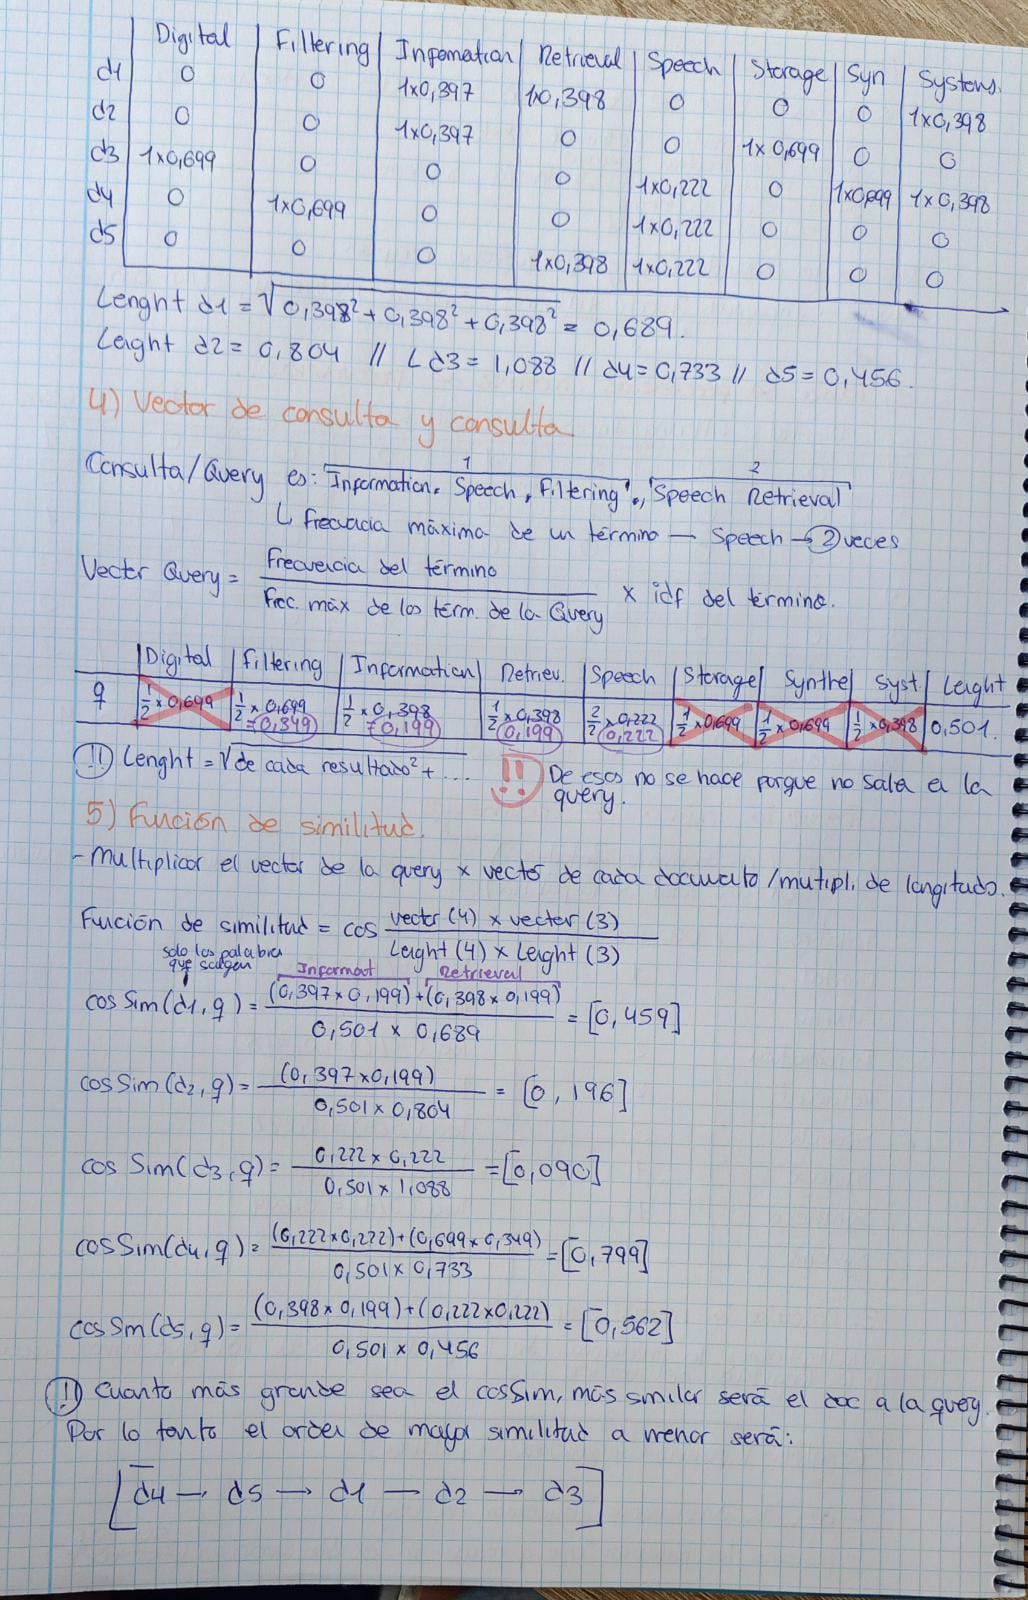 Digital | Filtering | Infomation | Retrieval | Speech | Storage | Syn | Systems.
d1 | 0 | 0 | 1x0,397 | 1x0,398 | 0 | 0 | 0 | 1x0,398
d2 | 0 | 0 | 1x0,397 | 0 | 0 | 1x0,699 | 0 | 0
d3 | 1x0,699 | 0 | 0 | 0 | 1x0,222 | 0 | 1x0,699 | 1x0,398
d4 | 0 | 1x0,699 | 0 | 0 | 1x0,222 | 0 | 0 | 0
d5 | 0 | 0 | 0 | 1x0,398 | 1x0,222 | 0 | 0 | 0
Lenght d1 = √0,398² + 0,398² + 0,398² = 0,689.
Leght d2 = 0,804 // L d3 = 1,088 // d4 = 0,733 // d5 = 0,456.
4) Vector de consulta y consulta
1 2
Consulta/Query es: 'Information, Speech, Filtering', 'Speech Retrieval'
↳ frecuencia máxima de un término — Speech → 2 veces
Vector Query = Frecuencia del término / Frec. máx de los térm. de la Query x idf del término.
Digital | Filtering | Information | Retriev. | Speech | Storage | Synthe | Syst. | Lenght
q | 1/2 x 0,699 | 1/2 x 0,699 = 0,349 | 1/2 x 0,398 = 0,199 | 1/2 x 0,398 0,199 | 2/2 x 0,222 0,222 | 1/2 x 0,699 | 1/2 x 0,699 | 1/2 x 0,398 | 0,501.
!! Lenght = √de cada resultado² + ...
!! De esos no se hace porque no sale en la
query.
5) Función de similitud.
- Multiplicar el vector de la query x vector de cada documento / multipl. de longitudes.
Función de similitud = cos vector (4) x vector (3) / Leight (4) x Leight (3)
solo las palabras
que salgan
Informat Retrieval
cos Sim (d1, q) = (0,397 x 0,199) + (0,398 x 0,199) / 0,501 x 0,689 = [0,459]
cos Sim (d2, q) = (0,397 x 0,199) / 0,501 x 0,804 = [0,196]
cos Sim (d3, q) = 0,222 x 0,222 / 0,501 x 1,088 = [0,090]
cos Sim (d4, q) = (0,222 x 0,222) + (0,699 x 0,349) / 0,501 x 0,733 = [0,799]
cos Sm (d5, q) = (0,398 x 0,199) + (0,222 x 0,222) / 0,501 x 0,456 = [0,562]
!! Cuanto más grande sea el cosSim, más similar será el doc a la query.
Por lo tanto el orden de mayor similitud a menor será:
[d4 → d5 → d1 → d2 → d3]